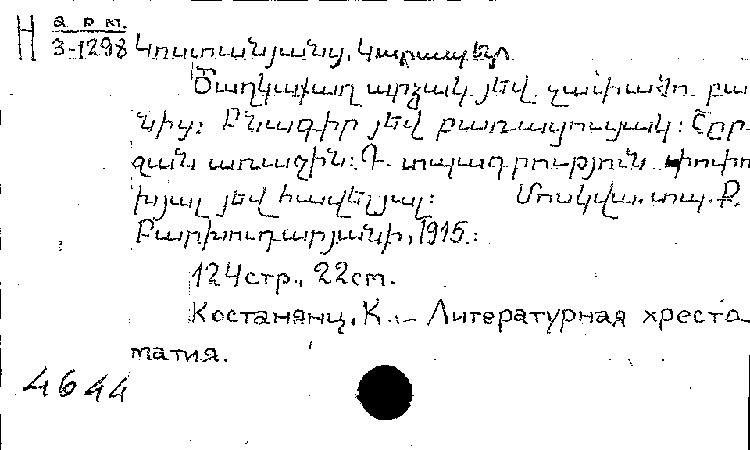 Н арм.
3-1298 Կոստանյանց, Կարապետ
Ծաղկաքաղ արձակ յեվ չափավո բա
նից: Բնագիր յեվ բառացուցակ: Շըր
ջան առաջին: Գ. տպագրություն փոփո
խյալ յեվ հավելյալ: Մոսկվա, տպ. Բ.
Բարխուդարյանի, 1915.:
124стр., 22cm.
Костанянц, К. – Литературная хресто-
матия.
4644